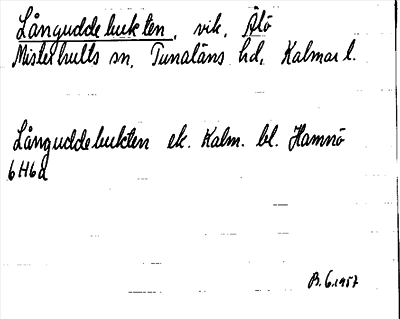 Långuddebukten, vik, Älö
Misterhults sn, Tunaläns hd, Kalmar l.
Långuddebukten ek. Kalm. bl. Hamnö
6H6d
B. 6.1957